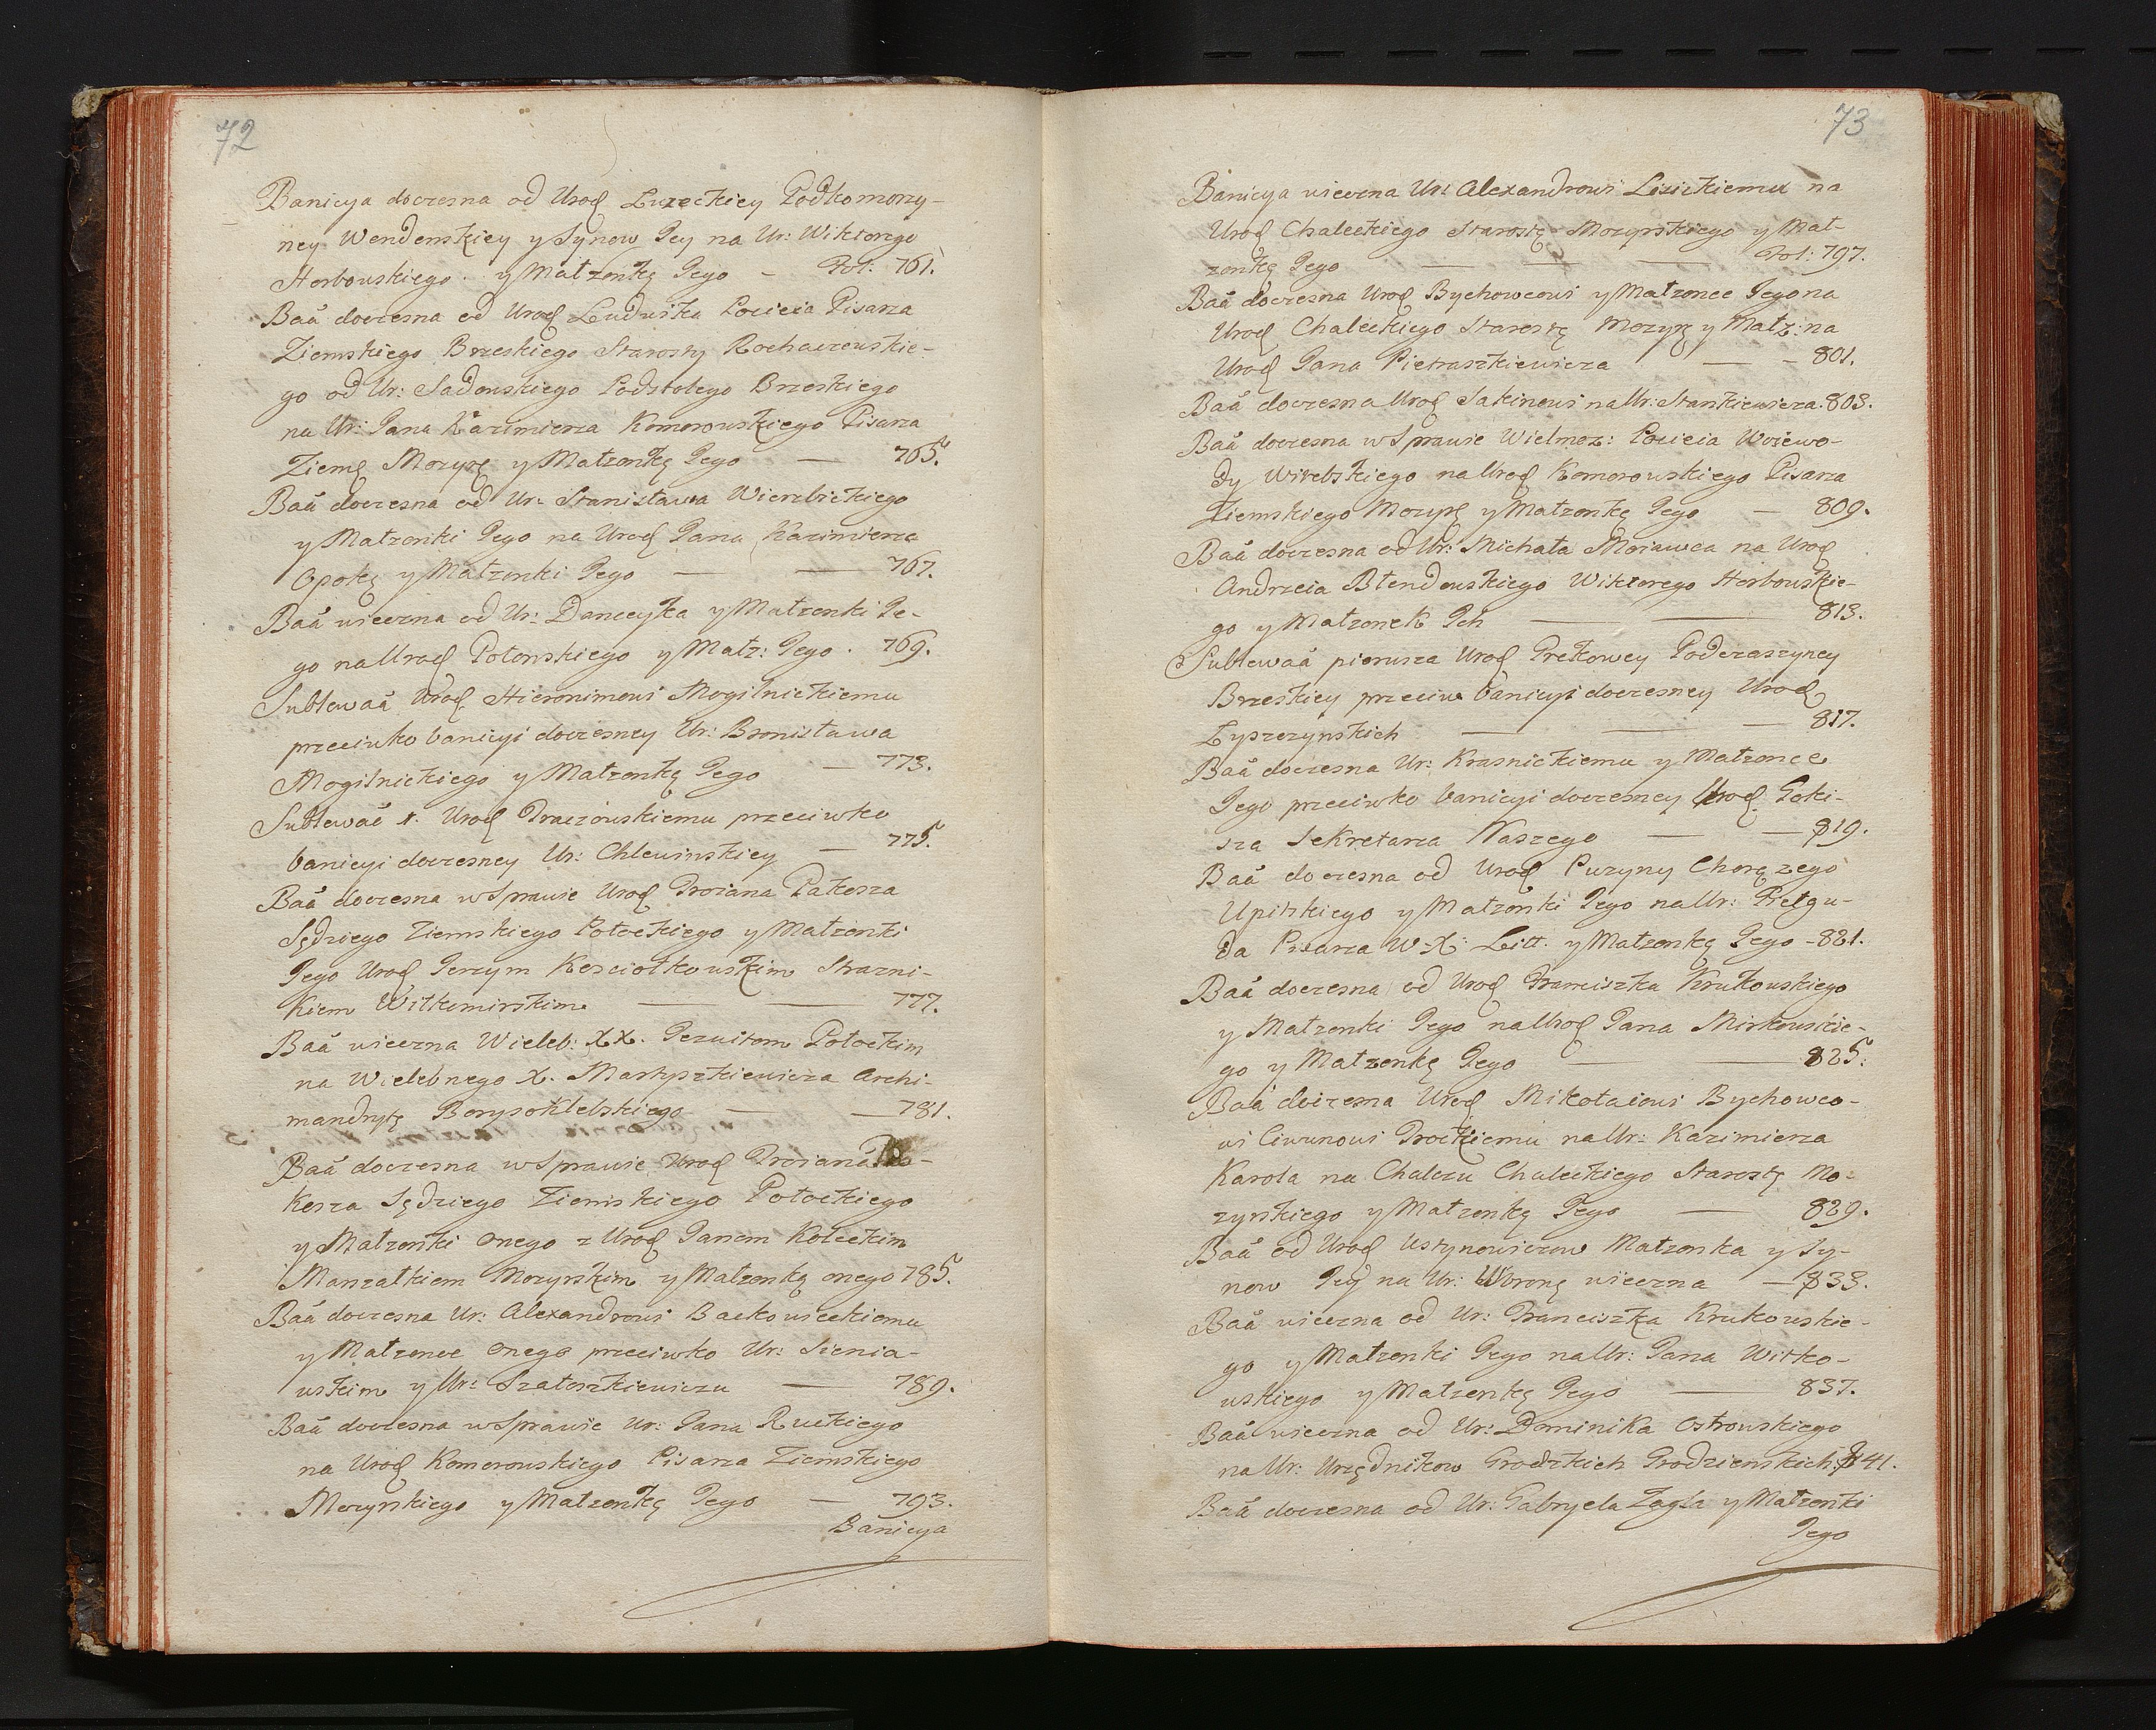 72
Banicya doczesna od Urod Luzeckiey Podkomorzy-
ney Wendenskiey y Synow Jey na Ur: Wiktorego
Horbowskiego y Małzonkę Jego - Fol: 761.
Baã doczesna od Urod Ludwika Pocieia Pisarza
Ziemskiego Brzeskiego Starosty Rochaczewskie-
go od Ur: Sadowskiego Podstolego Brzeskiego
na Ur: Jana Kazimierza Komorowskiego Pisarza
Ziemę Mozyrę y Małzonkę Jego — 765.
Baã doczesna od Ur: Stanisława Wierzbickiego
y Małzonki Jego na Urod Jana Kazimierza
Opokę y Małzonki Jego — — 767.
Baã wieczna od Ur: Danceyka y Małzonki Je-
go na Urod Połonskiego y Małz: Jego . 769.
Sublewaã Urod Hieronimowi Mogilnickiemu
przeciwko banicyi doczesney Ur: Bronisława
Mogilnickiego y Małzonkę Jego — 773.
Sublewaã Urod Draczowskiemu przeciwko
banicyi doczesney Ur: Chlewinskiey — 775.
Baã doczesna w Sprawie Urod Troiana Pakosza
Sędziego Ziemskiego Połockiego y Małzonki
Jego Urod Jerzym Kosciołkowskim Strazni-
kiem Wiłkomirskim — — 777.
Baã wieczna Wieleb: XX. Jezuitom Połockim
na Wielebnego X. Martyszkiewicza Archi-
mandrytę Borysoklebskiego — — 781.
Baã doczesna w Sprawie Urod Troiana Pa-
kosza Sędziego Ziemskiego Połockiego
y Małzonki onego z Urod Janem Kołeckim
Marszałkiem Mozyrskim y Małzonką onego 785.
Baã doczesna Ur: Alexandrowi Backowieckiemu
y Małzonce onego przeciwko Ur: Sienia-
wskim y Ur: Szatoszkiewiczu — 789.
Baã doczesna w Sprawie Ur: Jana Ruckiego
na Urod Komorowskiego Pisarza Ziemskiego
Mozyrskiego y Małzonkę Jego — 793.
Banicya
73
Banicya wieczna Ur: Alexandrowi Lizickiemu na
Urod Chaleckiego Starostę Mozyrskiego y Mał-
zonkę Jego — — — Fol: 797.
Baã doczesna Urod Bychowcowi y Małzonce Jego na
Urod Chaleckiego Starostę Mozyrę y Małz: na
Urod Jana Pietraszkiewicza — - 801.
Baã doczesna Urod Sakinowi na Ur: Stankiewicza. 803.
Baã doczesna w Sprawie Wielmoz: Pocieia Woiewo-
dy Witebskiego na Urod Komorowskiego Pisarza
Ziemskiego Mozyrę y Małzonkę Jego — 809.
Baã doczesna od Ur: Michała Morawca na Urod
Andrzeia Błendowskiego Wiktorego Horbowskie-
go y Małzonek Jch — — 813.
Sublewaã pierwsza Urod Prekowey Podczaszyney
Brzeskiey przeciw banicyi doczesney Urod
Łyszczynskich — — — 817.
Baã doczesna Ur: Krasnickiemu y Małzonce
Jego przeciwko banicyi doczesney Urod Goki-
sza Sekretarza Naszego — — 819.
Baã doczesna od Urod Puzyny Chorązego
Upitskiego y Małzonki Jego na Ur: Pietgu-
da Pisarza W. X. Litt. y Małzonkę Jego - 821.
Baã doczesna od Urod Franciszka Krukowskiego
y Małzonki Jego na Urod Jana Mirkowskie-
go y Małzonkę Jego — — 825.
Baã doczesna Urod Mikołaiowi Bychowco-
wi Ciwunowi Trockiemu na Ur: Kazimierza
Karola na Chalczu Chaleckiego Starostę Mo-
zyrskiego y Małzonkę Jego — 829.
Baã od Urod Ustynowiczow Małzonka y Sy-
now Jey na Ur: Woronę wieczna — 833.
Baã wieczna od Ur: Franciszka Krukowskie-
go y Małzonki Jego na Ur: Jana Witko-
wskiego y Małzonkę Jego — 837.
Baã wieczna od Ur: Dominika Ostrowskiego
na Ur: Urzędnikow Grodzkich Grodzienskich 841.
Baã doczesna od Ur: Gabryela Zagla y Małzonki
Jego